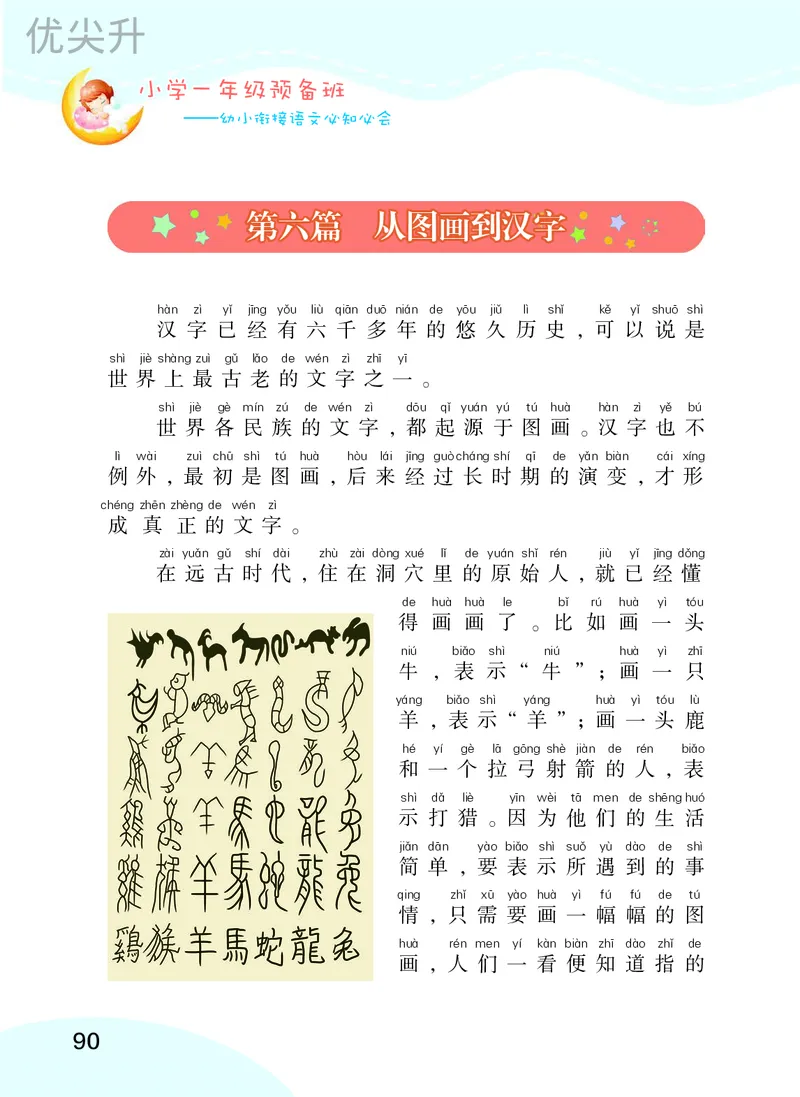 优尖升
小学一年级预备班
——幼小衔接语文必知必会
第六篇 从图画到汉字
hàn zì yǐ jīng yǒu liù qiān duō nián de yōu jiǔ lì shǐ kě yǐ shuō shì
汉字已经有六千多年的悠久历史，可以说是
shì jiè shàng zuì gǔ lǎo de wén zì zhī yī
世界上最古老的文字之一。
shì jiè gè mín zú de wén zì dōu qǐ yuán yú tú huà hàn zì yě bú
世界各民族的文字，都起源于图画。汉字也不
lì wài zuì chū shì tú huà hòu lái jīng guò cháng shí qī de yǎn biàn cái xíng
例外，最初是图画，后来经过长时期的演变，才形
chéng zhēn zhèng de wén zì
成真正的文字。
zài yuǎn gǔ shí dài zhù zài dòng xué lǐ de yuán shǐ rén jiù yǐ jīng dǒng
在远古时代，住在洞穴里的原始人，就已经懂
de huà huà le bǐ rú huà yì tóu
得画画了。比如画一头
niú biǎo shì niú huà yì zhī
牛，表示“牛”；画一只
yáng biǎo shì yáng huà yì tóu lù
羊，表示“羊”；画一头鹿
hé yí gè lā gōng shè jiàn de rén biǎo
和一个拉弓射箭的人，表
shì dǎ liè yīn wèi tā men de shēng huó
示打猎。因为他们的生活
jiǎn dān yào biǎo shì suǒ yù dào de shì
简单，要表示所遇到的事
qing zhǐ xū yào huà yì fú fú de tú
情，只需要画一幅幅的图
huà rén men yí kàn biàn zhī dào zhǐ de
画，人们一看便知道指的
鷄猴羊馬蛇龍兔
90